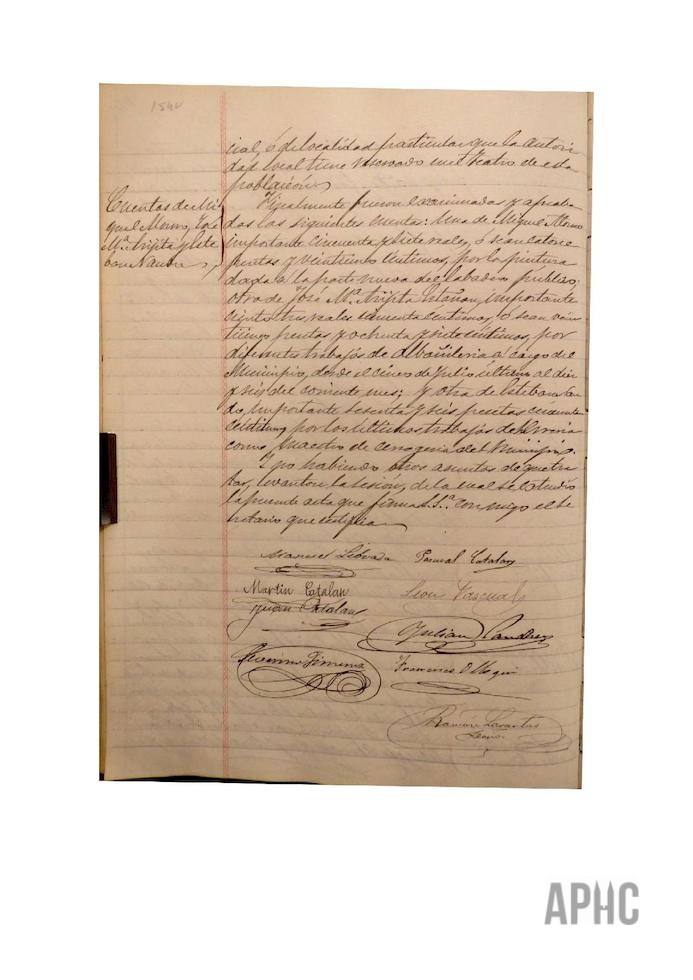 cial, ó de localidad particular que la autori
dad local tiene reservado en el teatro de esta
población.
Cuentas de Mi
guel Muro, José
Mª Arpita y Este
ban
Igualmente fueron examinadas y aproba
das las siguientes cuentas: Una de Miguel
importante cincuenta y siete reales, ó sean catorce
pesetas y veinticinco centimos, por la pintura
dada a la parte nueva del labadero publico;
otra de José Mª Arpita importante
ciento tres reales centimos, ó sean vein
ticinco pesetas y ochenta y siete centimos, por
diferentes trabajos de albañileria a cargo del
Municipio, desde el cinco de Julio último al diez
y seis del corriente mes; y otra de Esteban
importante sesenta y seis pesetas cincuenta
centimos por los ultimos trabajos de
como Maestro de del Municipio.
Y no habiendo otros asuntos de que tra
tar, levantose la sesion, de la cual se estendió
la presente acta que firma S.Sª. con migo el Se
cretario que certifica
Manuel Pascual Catalan
Martin Catalan Leon Pascual
Juan Catalan
Julian
Gimeno Francisco
Ramon
APHC